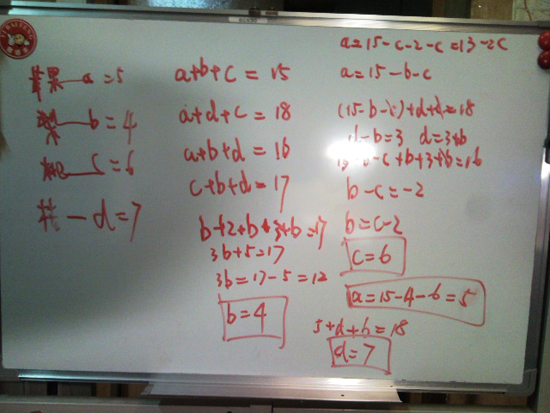 苹果—a=5
b=4
c=6
桃—d=7
a+b+c=15
a+d+c=18
a+b+d=16
c+b+d=17
b+2+b+3+b=17
3b+5=17
3b=17-5=12
b=4
a=15-c-2-c=13-2c
a=15-b-c
(15-b-c)+d+c=18
d-b=3 d=3+b
b-c=-2
b=c-2
c=6
a=15-4-6=5
5+d+6=18
d=7